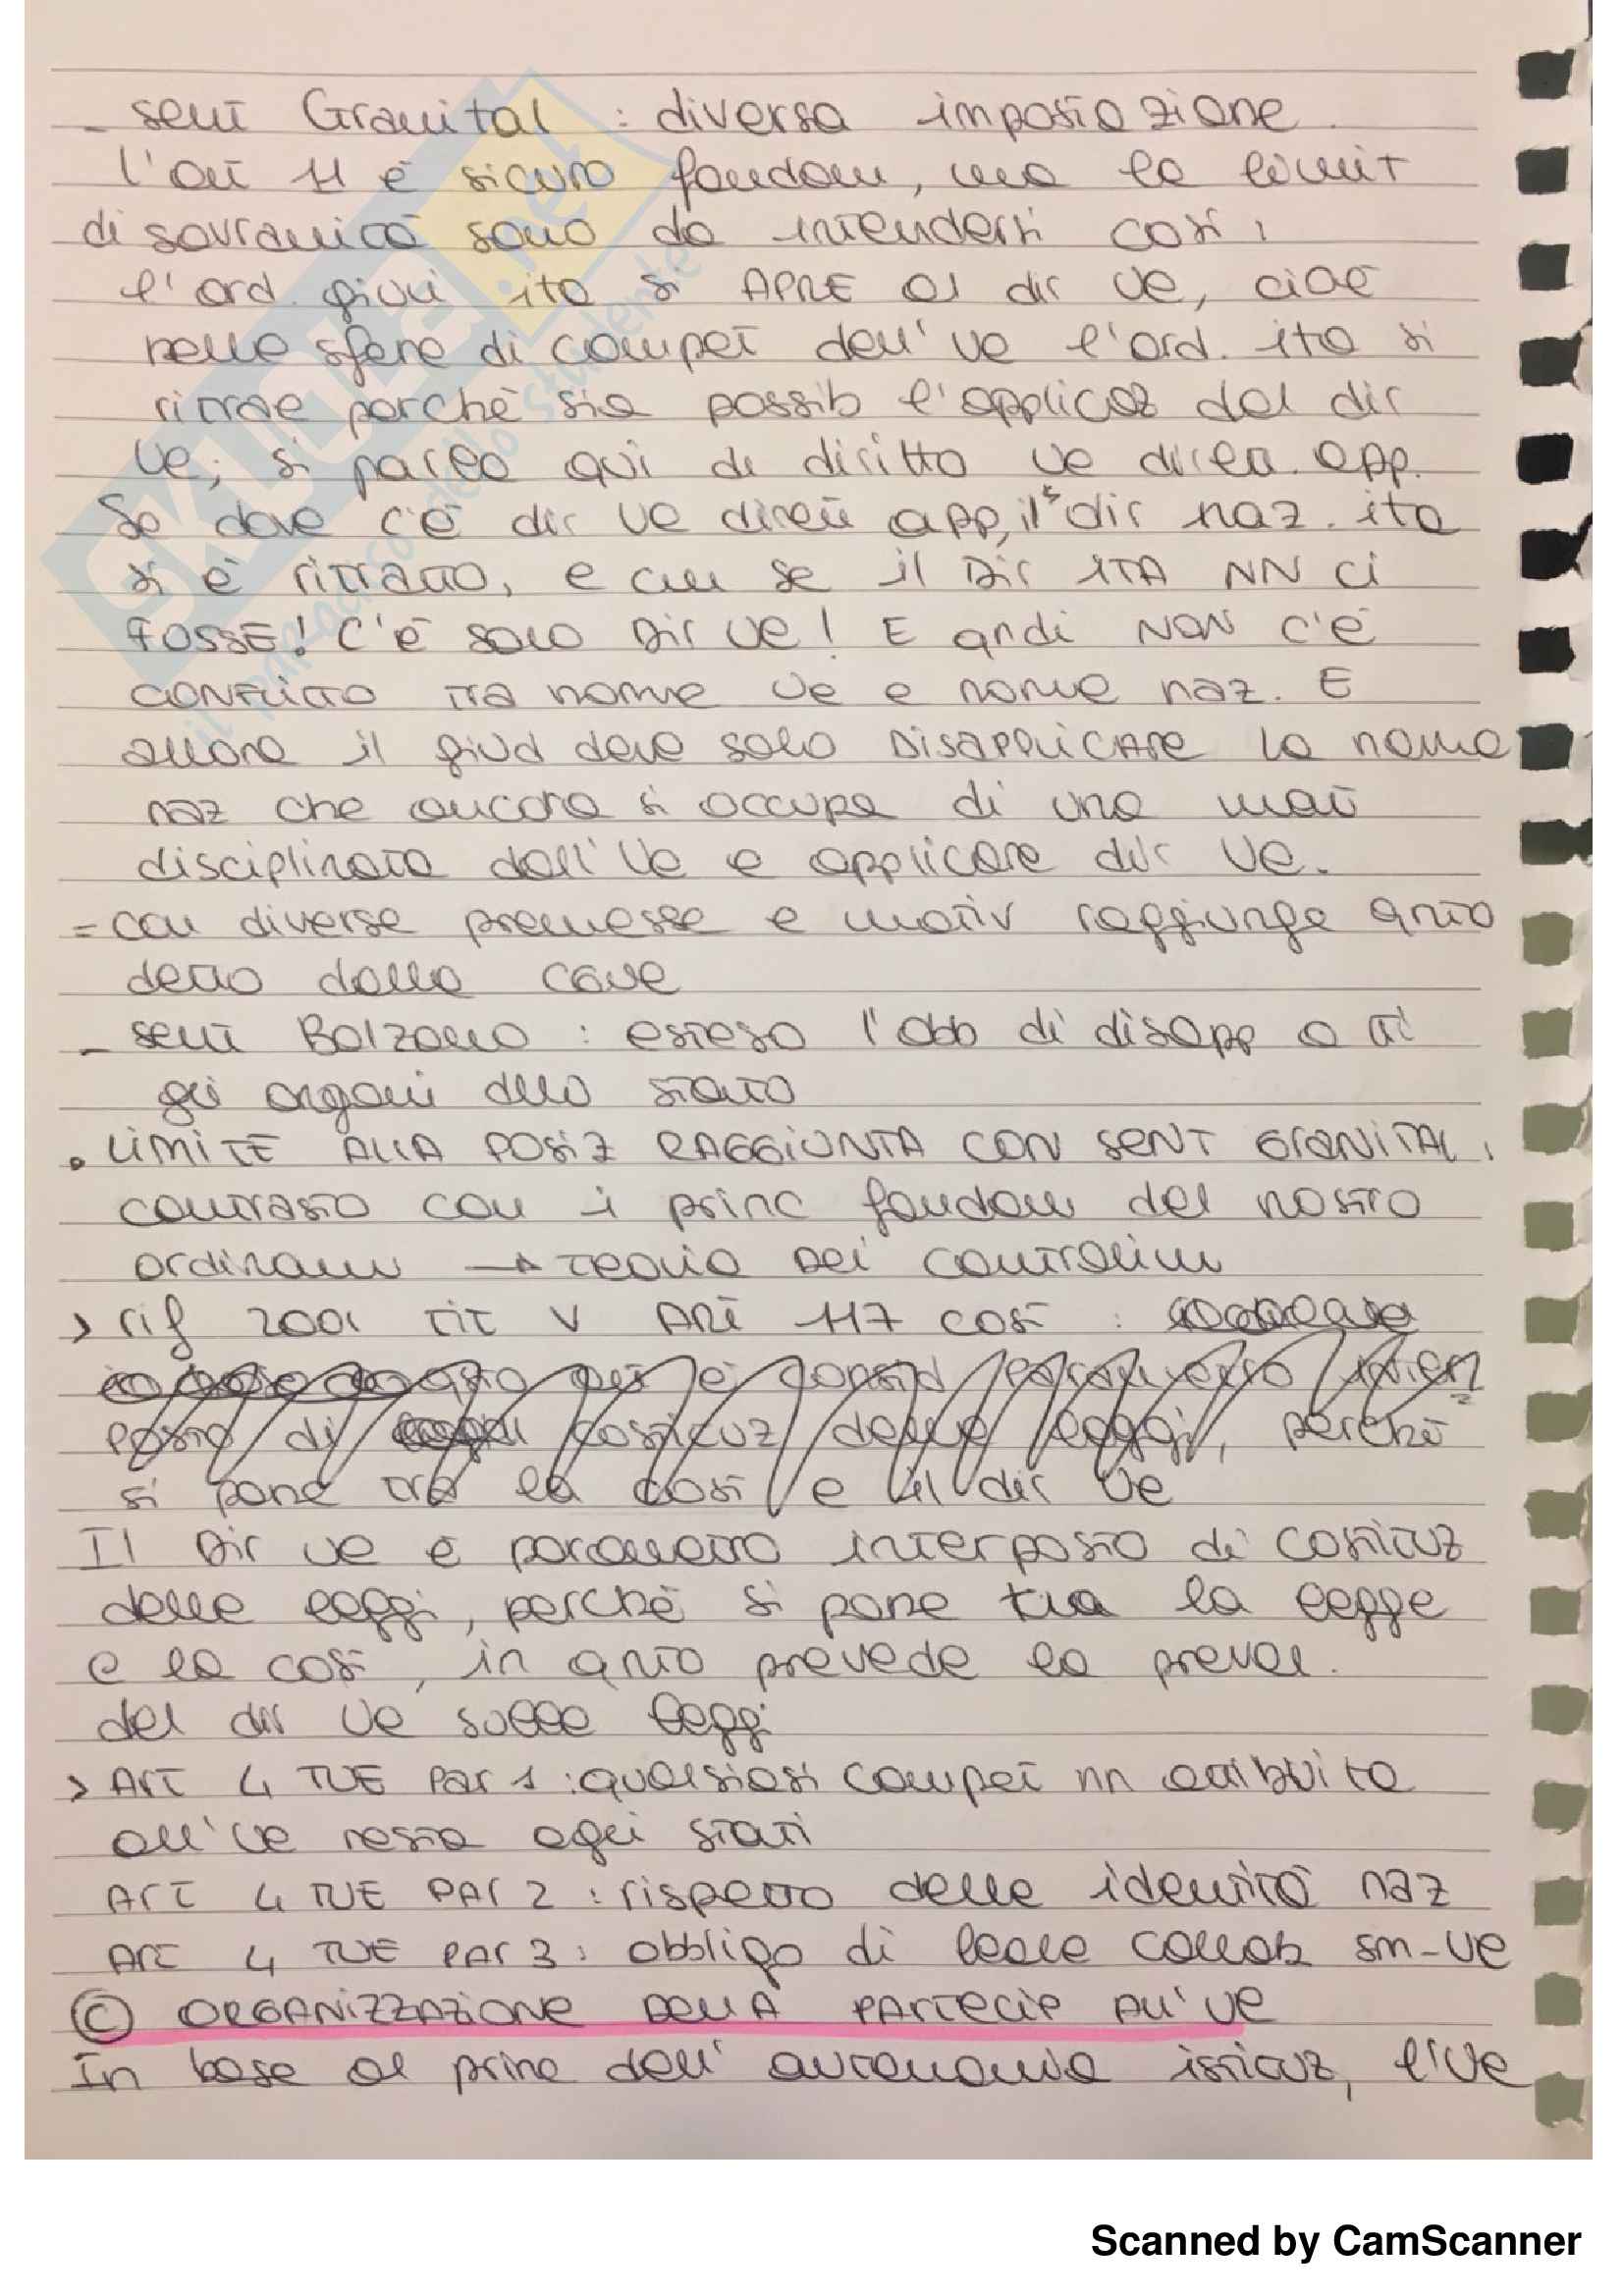 - sent Granital : diversa impostazione.
l'art 11 è sicuro fondam, ma le limit
di sovranità sono da intendersi così:
l'ord. giuri ita si APRE al dir Ue, cioè
nelle sfere di compet dell'Ue l'ord. ita si
ritrae perchè sia possib l'applicaz del dir
Ue; si parla qui di diritto Ue direta. app.
Se dove c'è dir Ue dirett app, il dir naz. ita
si è ritratto, è cm se il Dir ITA NN CI
FOSSE! C'è solo Dir Ue! E qndi NON C'È
CONFLITTO tra norme Ue e norme naz. E
allora il giud deve solo DISAPPLICARE la norma
naz che ancora si occupa di una mat
disciplinata dall'Ue e applicare dir Ue.
= con diverse premesse e motiv raggiunge qnto
detto dalla CGUE
- sent Bolzano : esteso l'obb di disapp a tt
gli organi dllo stato
• LIMITE ALLA POSIZ RAGGIUNTA CON SENT GRANITAL:
contrasto con i princ fondam del nostro
ordinam → teoria dei controlim
> rif 2001 TIT V ART 117 cost :
posto di costituz delle leggi, perchè
si pone tra la cost e il dir Ue
Il Dir Ue è parametro interposto di costituz
delle leggi, perchè si pone tra la legge
e la cost, in qnto prevede la preval.
del dir Ue sulle leggi
> ART 4 TUE PAR 1 : qualsiasi compet nn attribuita
all'Ue resta agli stati
ART 4 TUE PAR 2 : rispetto delle identità naz
ART 4 TUE PAR 3 : obbligo di leale collab sm-Ue
© ORGANIZZAZIONE DELLA PARTECIP ALL'UE
In base al princ dell'autonomia istituz, l'Ue
SKUOLA.net
Scanned by CamScanner